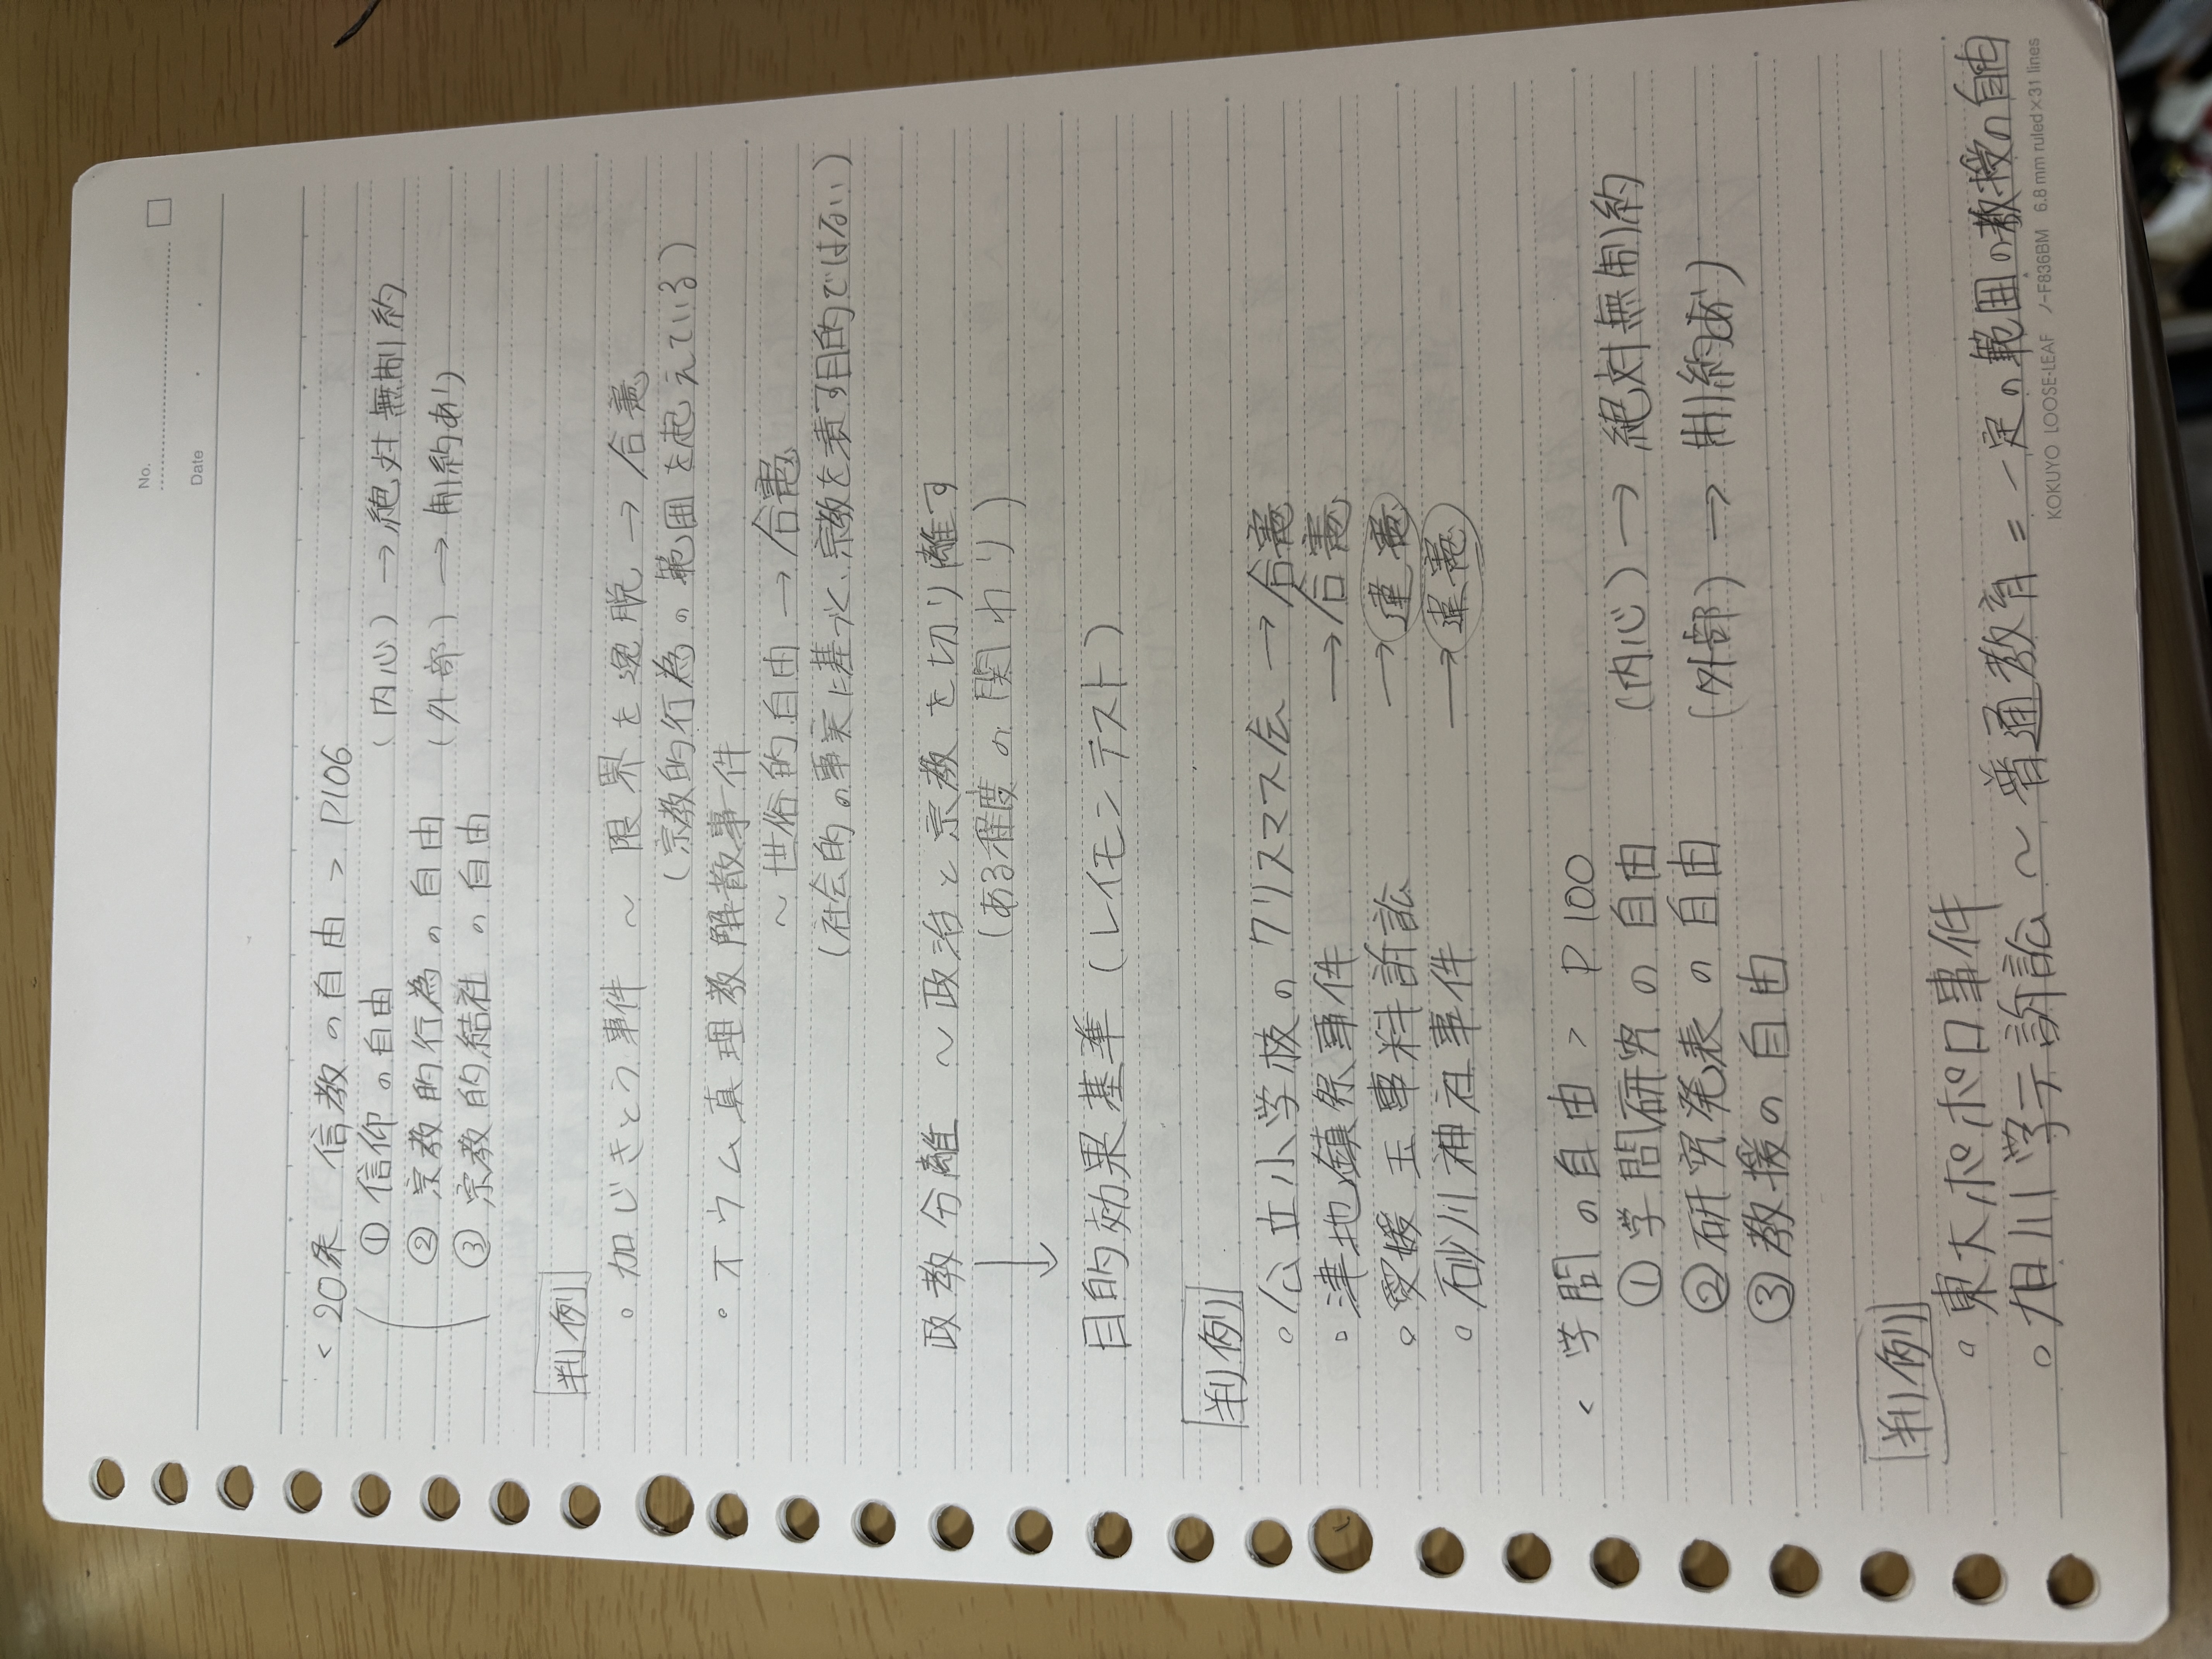 No.
Date
<20条 信教の自由> P106
① 信仰の自由 (内心) → 絶対無制約
② 宗教的行為の自由 (外部) → 制約あり
③ 宗教的結社の自由
判例
。加じきとう事件 ~ 限界を逸脱 → 合憲
(宗教的行為の範囲を起えている)
。オウム真理教解散事件
~ 世俗的自由 → 合憲
(社会的の事実に基づく、宗教を潰す目的ではない)
政教分離 ~ 政治と宗教を切り離す
(ある程度の関わり)
↓
目的効果基準 (レイモンテスト)
判例
。公立小学校のクリスマス会 → 合憲
。津地鎮祭事件 → 合憲
。愛媛玉事料訴訟 → 違憲
。砂川神社事件 → 違憲
<学問の自由> P100
① 学問研究の自由 (内心) → 絶対無制約
② 研究発表の自由 (外部) → 制約あり
③ 教援の自由
判例
。東大ポポロ事件
。旭川学テ訴訟 ~ 普通教育 = 一定の範囲の教授の自由
KOKUYO LOOSE-LEAF ノ-F836BM 6.8 mm ruled×31 lines